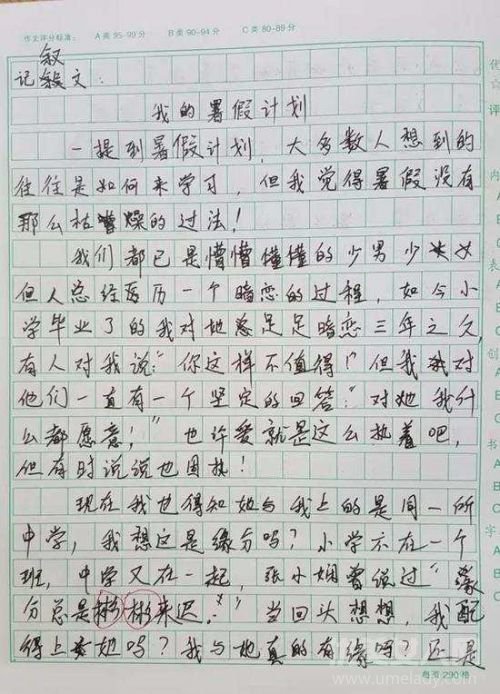 作文评分标准: A类 95-99分 B类 90-94分 C类 80-89分
叙
记叙文:
我的暑假计划
一提到暑假计划,大多数人想到的
往往是如何来学习,但我觉得暑假没有
那么枯燥的过法!
我们都已是懵懵懂懂的少男少女
但人总经历一个暗恋的过程,如今小
学毕业了的我对她足足暗恋三年之久,
有人对我说:“你这样不值得!”但我对
他们一直有一个坚定的回答:“对她我什
么都愿意!”也许爱就是这么执着吧,
但有时说说也困扰!
现在我也得知她与我上的是同一所
中学,我想这是缘分吗?小学不在一个
班,中学又在一起,张小娴曾说过“缘
分总是彬彬来迟。”当回头想想,我配
得上她吗?我与她真的有缘吗?还是
每页290格
www.umelady.com